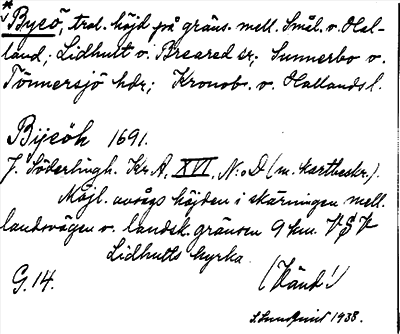 *
Byeö, trol. höjd på gräns. mell. Smål. o. Hal-
land; Lidhult o. Breared sr; Sunnerbo o.
Tönnersjö hdr; Kronob. o. Hallands l.
Bijeöh 1691.
J. Söderlingh. Kr. A. XVI, N:o D (m. kartbeskr.).
Möjl. avsågs höjden i skärningen mell.
landsvägen o. landsk. gränsen 9 km. VSV
Lidhults kyrka.
G. 14.
(Känd!)
S. Lundquist 1938.